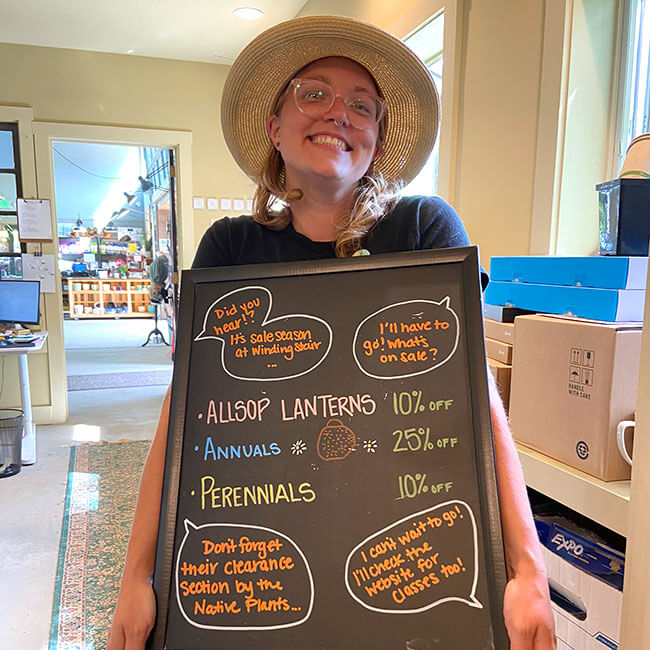 Did you
hear!?
It's sale season
at Winding Stair
...
I'll have to
go! What's
on sale?
• ALLSOP LANTERNS 10% OFF
• ANNUALS 25% OFF
• PERENNIALS 10% OFF
Don't forget
their clearance
section by the
Native Plants...
I can't wait to go!
I'll check the
website for
classes too!
HANDLE
WITH CARE
EXPO